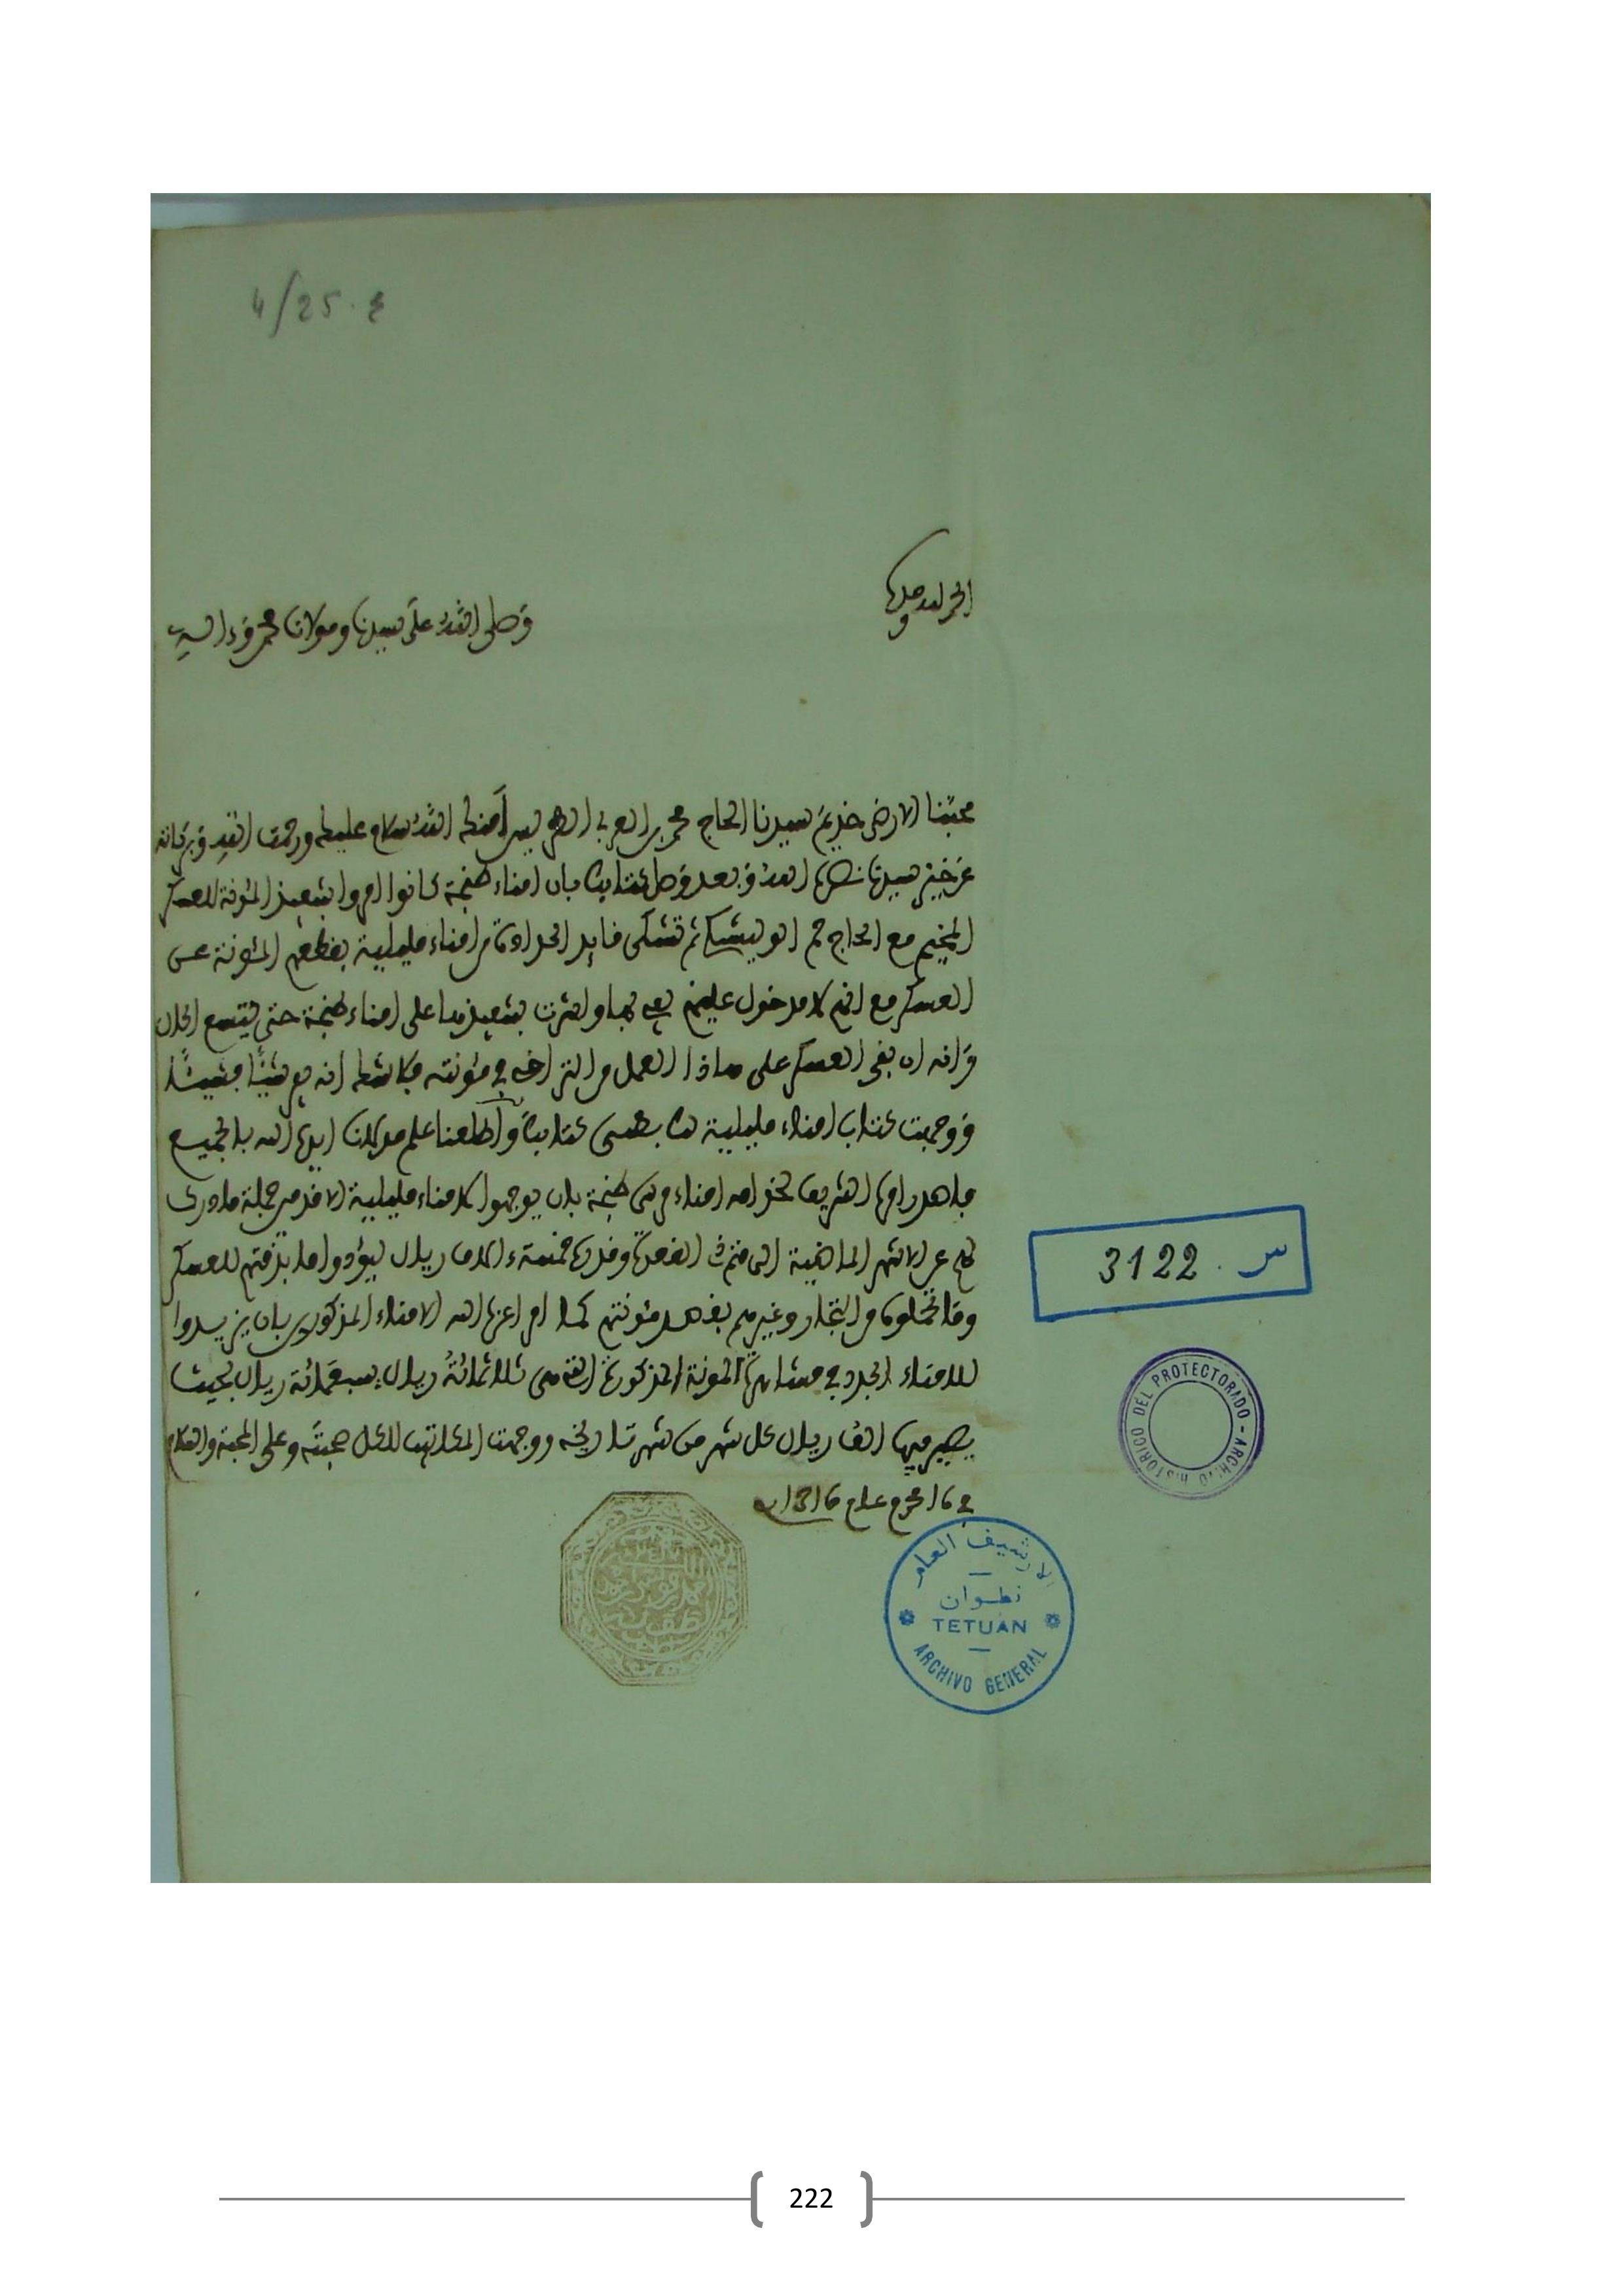 4/25 . ع
الحمد لله وحده
وصلى الله على سيدنا ومولانا محمد وءاله
محبنا الارضى خديم سيدنا الحاج محمد بن العربي الطريس أمنك الله وسلام عليك ورحمت الله وبركاته
عن خير سيدنا نصره الله وبعد وصل كتابك بان امناء طنجة كانوا امروا بتنفيذ المؤنة للعسكر
المخيم مع الحاج ثم تشكى قايد من امناء مليلية بقطعهم المئونة عن
العسكر مع انهم لا مدخول عليهم يفي بها واشرت بتنفيذها على امناء طنجة حتى يتسع الحال
وانه ان بقى العسكر على هاذا العمل من التراخي في مئونته فلاشك انه يفر شيئا فشيئا
ووجهت كتاب امناء مليلية لك بطى كتابك وأطلعنا علم مولانا ايده الله بالجميع
فاصدر امره الشريف لخدامه امناء مرسى طنجة بان يوجهوا لامناء مليلية الان من جملة ما
لهم عن الاشهر الماضية الى متم ذي القعدة وقدره خمسة ءالاف ريال ليؤدوا ما بذمتهم للعسكر
وما تحملوه من التجار وغيرهم بقصد مئونتهم كما امر اعزه الله الامناء المذكورين بان يزيدوا
للامناء الجدد في مشاهرة المونة المذكورة التي هى ثلاثمائة ريال سبعمائة ريال بحيث
يصير فيها الف ريال كل شهر من شهر تاريخه ووجهت المكاتيب للكل صحبته وعلى المحبة والسلام
في 16 محرم عام 1316
س . 3122
ARCHIVO HISTORICO DEL PROTECTORADO -
الارشيف العام
تطوان
TETUAN
ARCHIVO GENERAL
222